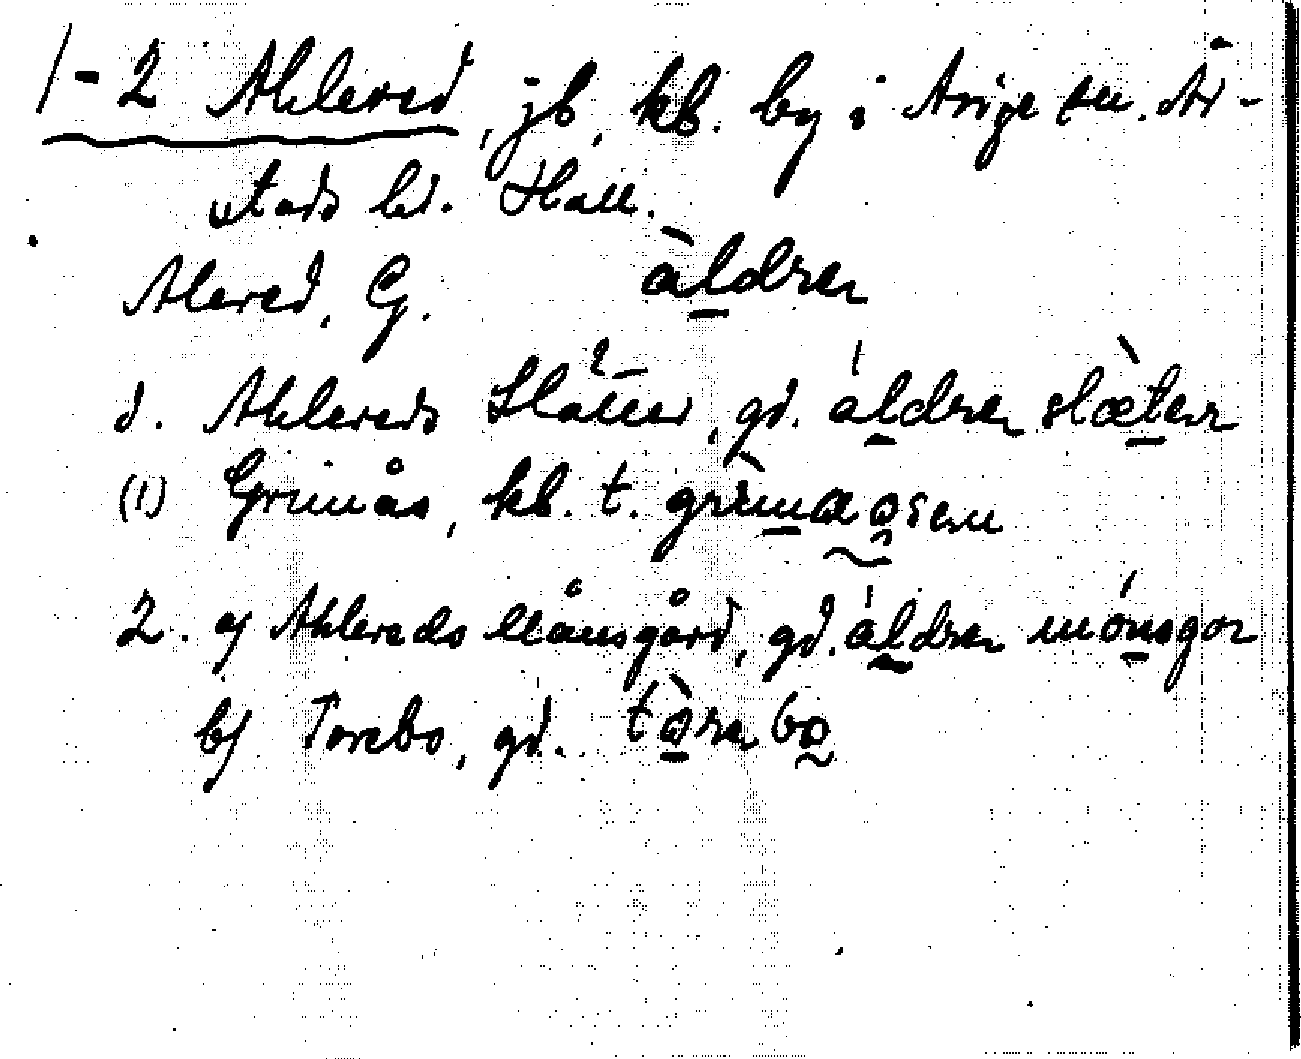 1-2 Ahlered, jb, kb. by i Arige sn. År-
stads hd. Hall.
Alered, G. àldrer
d. Ahlereds Slätter, gd. áldrer slæ̀terr
(1) Grimås, kb. t. grìmaosen
2. a) Ahlereds Månsgård, gd. áldrer mónsgor
b) Torebo, gd. tòrrebo